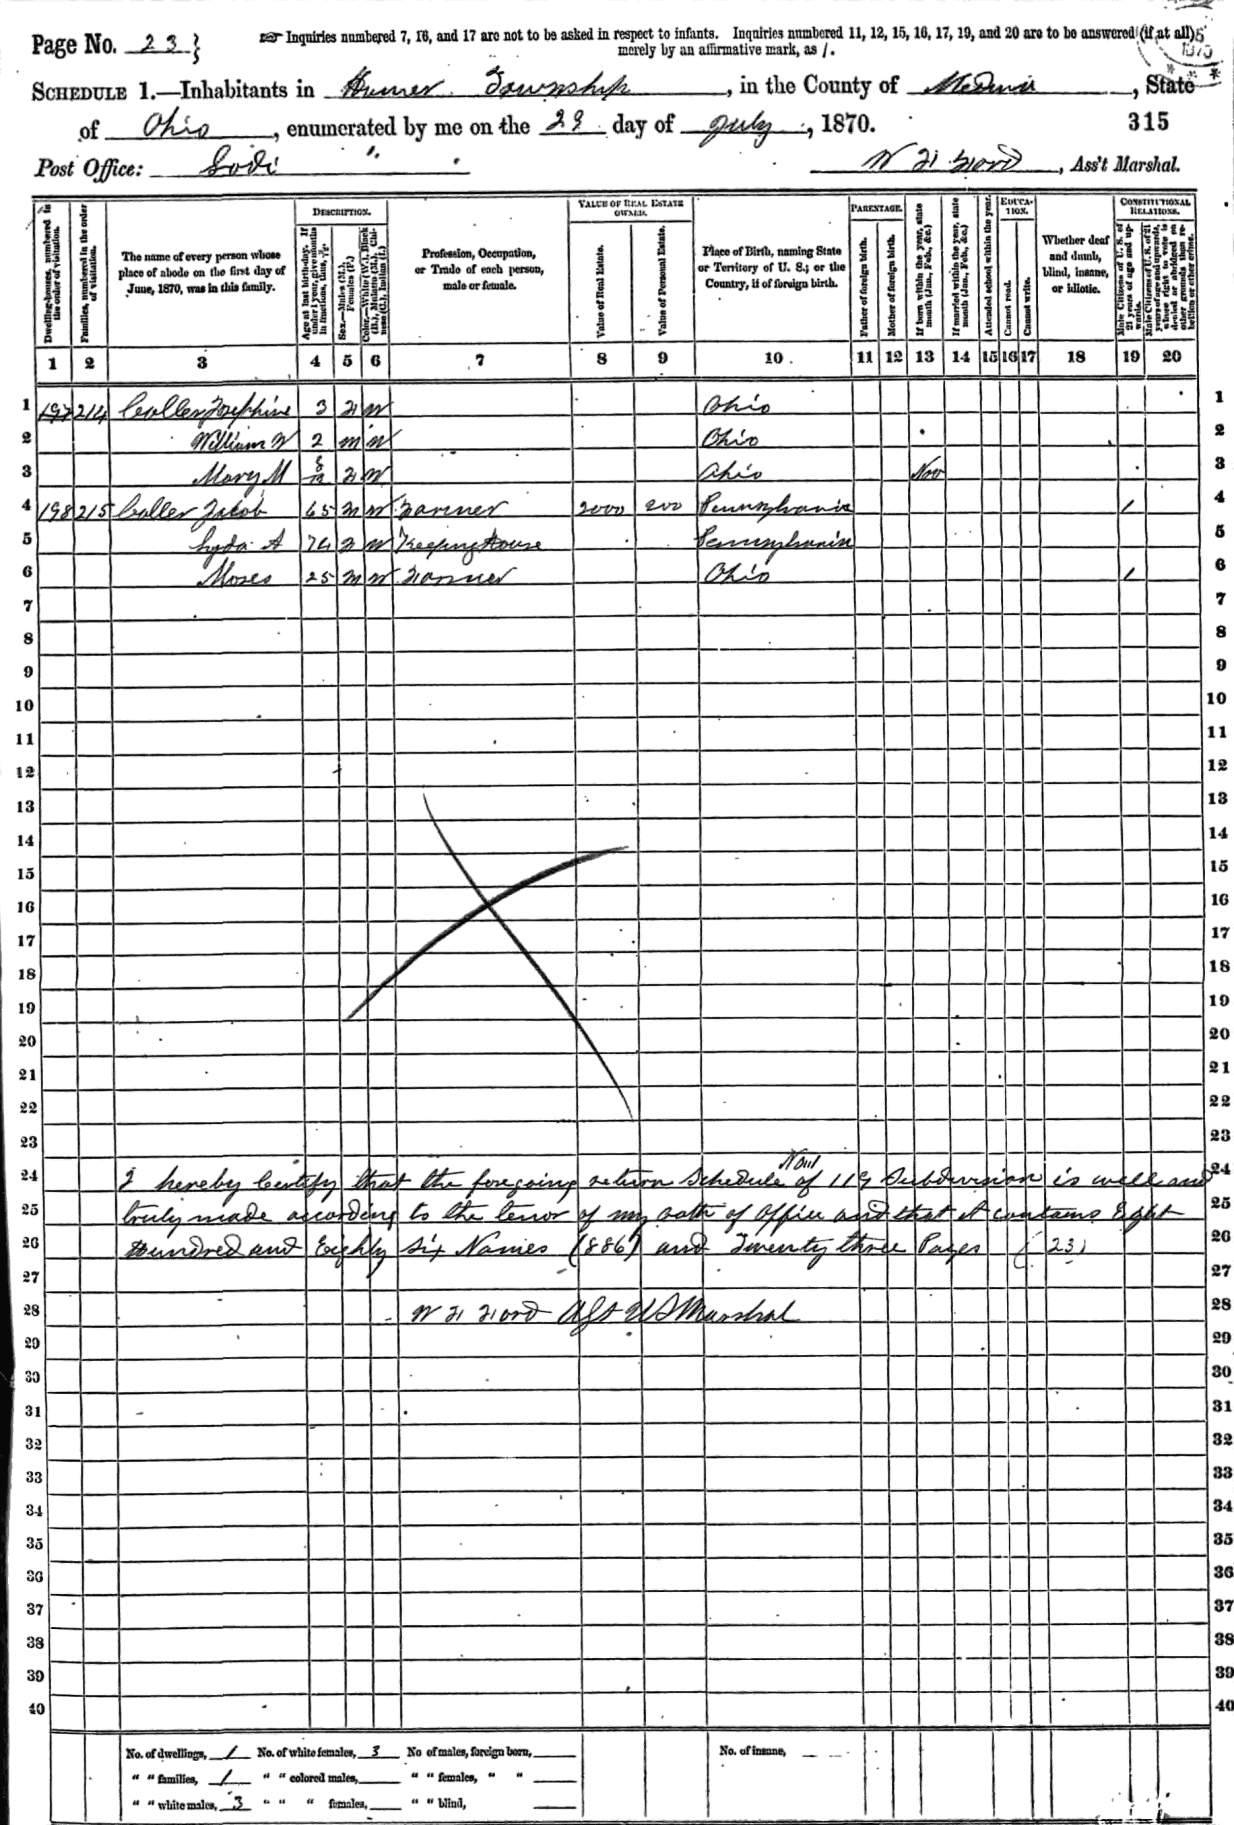 Page No. 23 }
☞ Inquiries numbered 7, 16, and 17 are not to be asked in respect to infants. Inquiries numbered 11, 12, 15, 16, 17, 19, and 20 are to be answered (if at all)
merely by an affirmative mark, as /.
SCHEDULE 1.—Inhabitants in Homer Township, in the County of Medina, State
of Ohio, enumerated by me on the 29 day of July, 1870.
315
Post Office: Lodi
W H Ford, Ass't Marshal.
Dwelling-houses, numbered in the order of visitation.
Families, numbered in the order of visitation.
The name of every person whose place of abode on the first day of June, 1870, was in this family.
DESCRIPTION.
Age at last birth-day. If under 1 year, give months in fractions, thus, 3/12.
Sex.—Males (M.), Females (F.)
Color.—White (W.), Black (B.), Mulatto (M.), Chinese (C.), Indian (I.)
Profession, Occupation, or Trade of each person, male or female.
VALUE OF REAL ESTATE OWNED.
Value of Real Estate.
Value of Personal Estate.
Place of Birth, naming State or Territory of U. S.; or the Country, if of foreign birth.
PARENTAGE.
Father of foreign birth.
Mother of foreign birth.
If born within the year, state month (Jan., Feb., &c.)
If married within the year, state month (Jan., Feb., &c.)
Attended school within the year.
EDUCATION.
Cannot read.
Cannot write.
Whether deaf and dumb, blind, insane, or idiotic.
CONSTITUTIONAL RELATIONS.
Male Citizens of U. S. of 21 years of age and upwards.
Male Citizens of U. S. of 21 years of age and upwards, whose right to vote is denied or abridged on other grounds than rebellion or other crime.
1 2 3 4 5 6 7 8 9 10 11 12 13 14 15 16 17 18 19 20
1 197 214 Coller Josephine 3 F W Ohio 1
2 William W 2 M W Ohio 2
3 Mary M 8/12 F W Ohio Nov 3
4 198 215 Coller Jacob 65 M W Farmer 2000 200 Pennsylvania / 4
5 Lyda A F W Keeping House Pennsylvania 5
6 Moses 25 M W Farmer Ohio / 6
7 7
8 8
9 9
10 10
11 11
12 12
13 13
14 14
15 15
16 16
17 17
18 18
19 19
20 20
21 21
22 22
23 23
24 I hereby Certify that the foregoing return Schedule No 1 of 119 Subdivision is well and 24
25 truly made according to the tenor of my oath of Office and that it contains Eight 25
26 Hundred and Eighty Six Names (886) and Twenty three Pages (23) 26
27 27
28 W H Ford Ast U S Marshal 28
29 29
30 30
31 31
32 32
33 33
34 34
35 35
36 36
37 37
38 38
39 39
40 40
No. of dwellings, 1 No. of white females, 3 No of males, foreign born, No. of insane,
" " families, 1 " " colored males, " " females, " "
" " white males, 3 " " " females, " " blind,